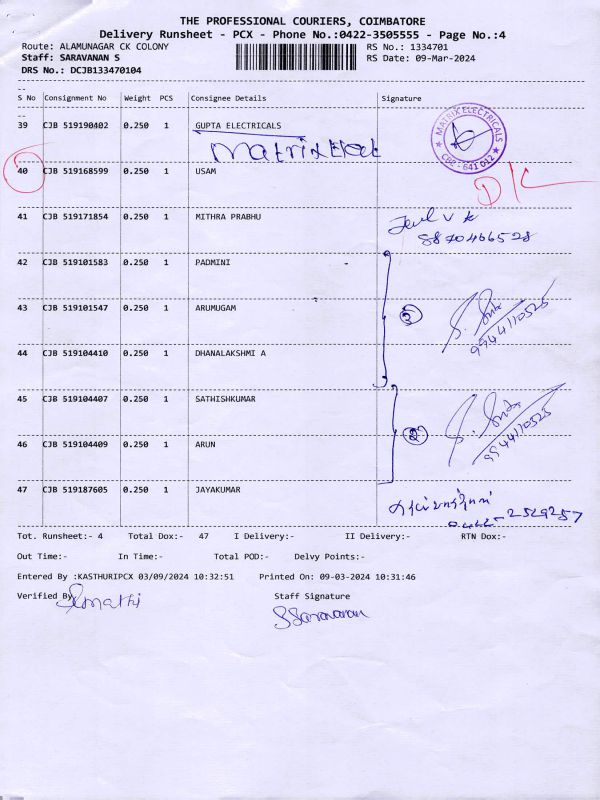 THE PROFESSIONAL COURIERS, COIMBATORE
Delivery Runsheet - PCX - Phone No.:0422-3505555 - Page No.:4
Route: ALAMUNAGAR CK COLONY RS No.: 1334701
Staff: SARAVANAN S RS Date: 09-Mar-2024
DRS No.: DCJB133470104
S No Consignment No Weight PCS Consignee Details Signature
39 CJB 519190402 0.250 1 GUPTA ELECTRICALS
Matrix Elect
MATRIX ELECTRICALS
CBE - 641 012
40 CJB 519168599 0.250 1 USAM
41 CJB 519171854 0.250 1 MITHRA PRABHU
8870466528
42 CJB 519101583 0.250 1 PADMINI
43 CJB 519101547 0.250 1 ARUMUGAM
3
9944110525
44 CJB 519104410 0.250 1 DHANALAKSHMI A
45 CJB 519104407 0.250 1 SATHISHKUMAR
46 CJB 519104409 0.250 1 ARUN
2
9944110525
47 CJB 519187605 0.250 1 JAYAKUMAR
0422-2529257
Tot. Runsheet:- 4 Total Dox:- 47 I Delivery:- II Delivery:- RTN Dox:-
Out Time:- In Time:- Total POD:- Delvy Points:-
Entered By :KASTHURIPCX 03/09/2024 10:32:51 Printed On: 09-03-2024 10:31:46
Verified By Staff Signature
SSaravanan